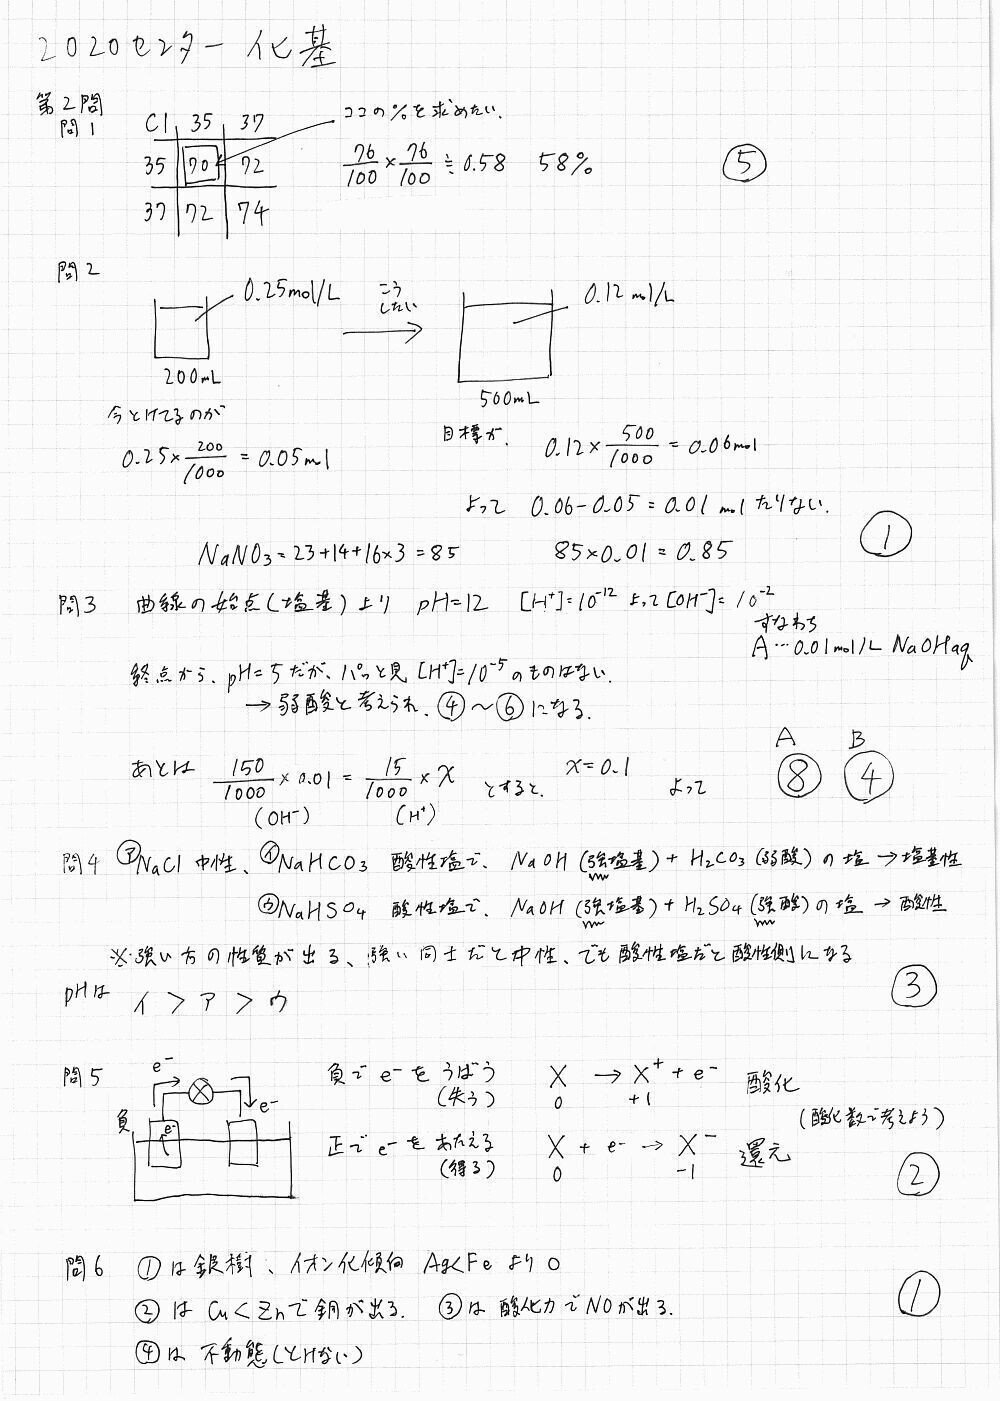 2020センター 化基
第2問
問1
Cl 35 37
35 70 72
37 72 74
ココの%を求めたい.
76/100 × 76/100 ≒ 0.58 58%
⑤
問2
0.25mol/L
200mL
こう
したい
0.12 mol/L
500mL
今とけてるのが
0.25×200/1000 = 0.05mol
目標が、 0.12×500/1000 = 0.06mol
よって 0.06-0.05=0.01 mol たりない.
NaNO₃=23+14+16×3=85 85×0.01=0.85
①
問3 曲線の始点(塩基)より pH=12 [H⁺]=10⁻¹² よって[OH⁻]=10⁻²
すなわち
A…0.01mol/L NaOHaq
終点から、pH=5だが、パッと見[H⁺]=10⁻⁵のものはない.
→弱酸と考えられ、④〜⑥になる.
あとは 150/1000 × 0.01 = 15/1000 × x とすると、 x=0.1 よって
(OH⁻) (H⁺)
A B
⑧ ④
問4 ㋐NaCl 中性、㋑NaHCO₃ 酸性塩で、NaOH(強塩基)+H₂CO₃(弱酸)の塩→塩基性
㋒NaHSO₄ 酸性塩で、NaOH(強塩基)+H₂SO₄(強酸)の塩→酸性
※強い方の性質が出る、強い同士だと中性、でも酸性塩だと酸性側になる
pHは イ > ア > ウ
③
問5
e⁻
e⁻
負
e⁻
負で e⁻を うばう X → X⁺ + e⁻ 酸化
(失う) 0 +1
(酸化数で考えよう)
正で e⁻を あたえる X + e⁻ → X⁻ 還元
(得る) 0 -1
②
問6 ①は銀樹、イオン化傾向 Ag<Fe より○
②は Cu<Znで銅が出る. ③は 酸化力でNOが出る.
④は 不動態(とけない)
①